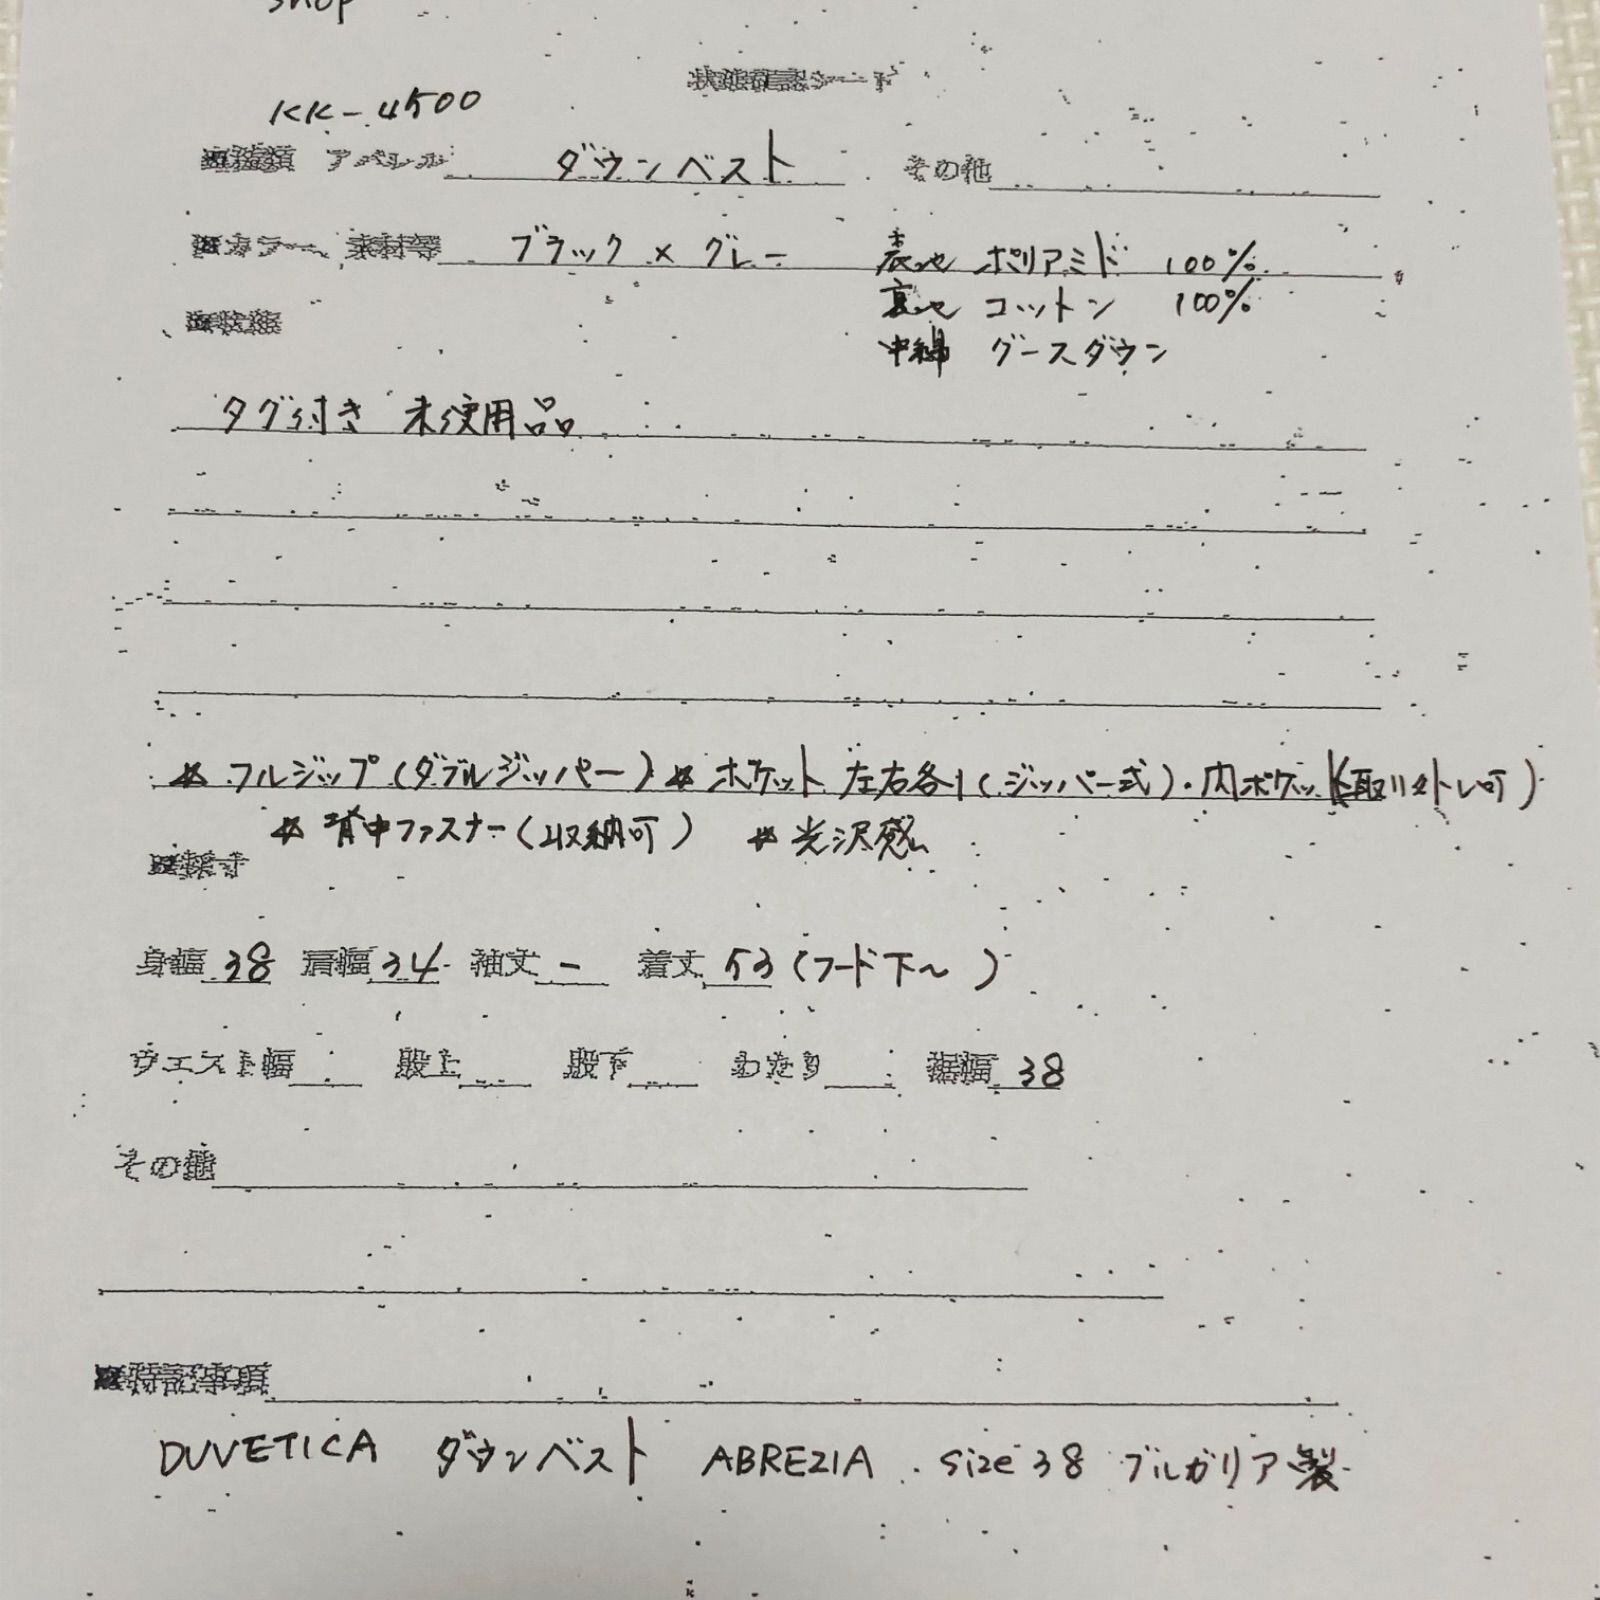 shop
状態確認シート
KK-4500
■種類 アパレル ダウンベスト その他
■カラー、素材等 ブラック × グレー 表地 ポリアミド 100%
裏地 コットン 100%
■状態
中綿 グースダウン
タグ付き 未使用品
* フルジップ(ダブルジッパー) * ポケット 左右各1(ジッパー式)・内ポケット(取り外し可)
* 背中ファスナー(収納可) * 光沢感
■採寸
身幅 38 肩幅 34 袖丈 - 着丈 53 (フード下〜)
ウエスト幅 股上 股下 わたり 裾幅 38
その他
■特記事項
DUVETICA ダウンベスト ABREZIA . size 38 ブルガリア製